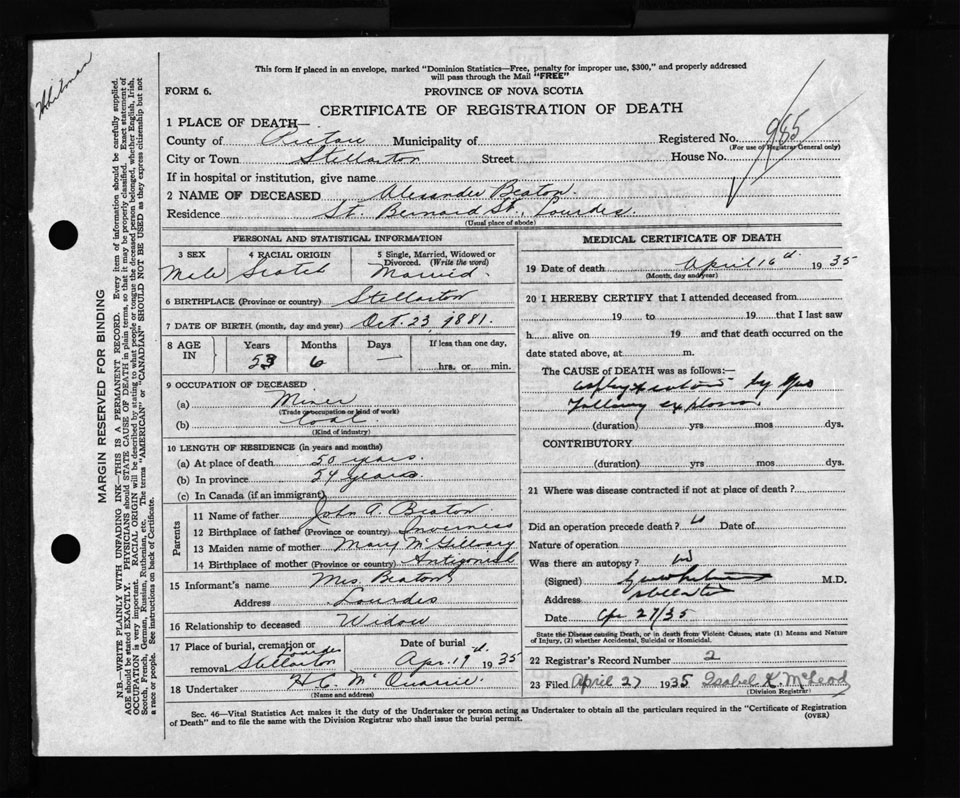 Whitman
This form if placed in an envelope, marked "Dominion Statistics—Free, penalty for improper use, $300," and properly addressed
will pass through the Mail "FREE"
FORM 6. PROVINCE OF NOVA SCOTIA
CERTIFICATE OF REGISTRATION OF DEATH
1 PLACE OF DEATH—
County of Pictou Municipality of Registered No. 985
(For use of Registrar General only)
City or Town Stellarton Street House No.
If in hospital or institution, give name
2 NAME OF DECEASED Alexander Beaton.
Residence St. Bernard St., Lourdes.
(Usual place of abode)
PERSONAL AND STATISTICAL INFORMATION
3 SEX 4 RACIAL ORIGIN 5 Single, Married, Widowed or
Divorced. (Write the word)
Male Scotch Married.
6 BIRTHPLACE (Province or country) Stellarton
7 DATE OF BIRTH (month, day and year) Oct. 23, 1881.
8 AGE IN Years Months Days If less than one day,
53 6 — hrs. or min.
9 OCCUPATION OF DECEASED
(a) Miner
(Trade or occupation or kind of work)
(b) Coal
(Kind of industry)
10 LENGTH OF RESIDENCE (in years and months)
(a) At place of death 50 years.
(b) In province 54 years.
(c) In Canada (if an immigrant)
Parents
11 Name of father John A. Beaton
12 Birthplace of father (Province or country) Inverness
13 Maiden name of mother Mary McGillvary
14 Birthplace of mother (Province or country) Antigonish
15 Informant's name Mrs. Beaton
Address Lourdes
16 Relationship to deceased Widow
17 Place of burial, cremation or
removal Lourdes Stellarton
Date of burial
Apr. 19th. 1935
18 Undertaker H C. McQuarrie.
(Name and address)
MEDICAL CERTIFICATE OF DEATH
19 Date of death April 16th 1935
(Month, day and year)
20 I HEREBY CERTIFY that I attended deceased from
19 to 19 that I last saw
h alive on 19 and that death occurred on the
date stated above, at m.
The CAUSE OF DEATH was as follows:—
by gas
following explosion
(duration) yrs mos dys.
CONTRIBUTORY
(duration) yrs mos dys.
21 Where was disease contracted if not at place of death?
Did an operation precede death? Date of
Nature of operation
Was there an autopsy?
(Signed) M.D.
Address Stellarton
Date Apr 27/35
State the Disease causing Death, or in death from Violent Causes, state (1) Means and Nature
of Injury, (2) whether Accidental, Suicidal or Homicidal.
22 Registrar's Record Number 2
23 Filed April 27 1935 Isabel K. McLeod
(Division Registrar)
Sec. 46—Vital Statistics Act makes it the duty of the Undertaker or person acting as Undertaker to obtain all the particulars required in the "Certificate of Registration
of Death" and to file the same with the Division Registrar who shall issue the burial permit. (OVER)
MARGIN RESERVED FOR BINDING
N.B.—WRITE PLAINLY WITH UNFADING INK—THIS IS A PERMANENT RECORD. Every item of information should be carefully supplied.
AGE should be stated EXACTLY. PHYSICIANS should STATE CAUSE OF DEATH in plain terms, so that it may be properly classified. Exact statement of
OCCUPATION is very important. RACIAL ORIGIN will be described by stating to what people or tongue the deceased person belonged, whether English, Irish,
Scotch, French, German, Russian, Ruthenian, etc. The terms "AMERICAN" or "CANADIAN" SHOULD NOT BE USED as they express citizenship but not
a race or people. See instructions on back of Certificate.